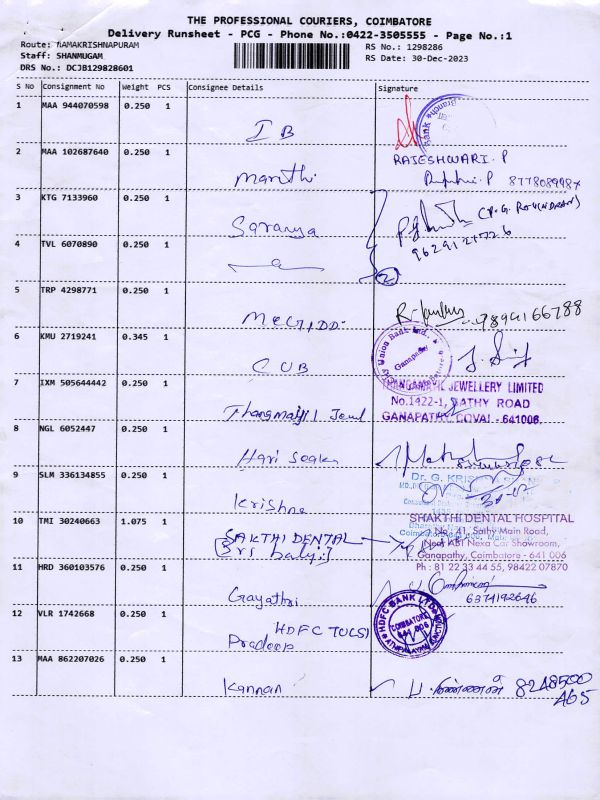 THE PROFESSIONAL COURIERS, COIMBATORE
Delivery Runsheet - PCG - Phone No.:0422-3505555 - Page No.:1
Route: RAMAKRISHNAPURAM RS No.: 1298286
Staff: SHANMUGAM RS Date: 30-Dec-2023
DRS No.: DCJB129828601
S No Consignment No Weight PCS Consignee Details Signature
1 MAA 944070598 0.250 1
IB
2 MAA 102687640 0.250 1 RAJESHWARI. P
Maruthi
3 KTG 7133960 0.250 1
Saranya
4 TVL 6070890 0.250 1
2
5 TRP 4298771 0.250 1
7894166788
6 KMU 2719241 0.345 1
CUB
7 IXM 505644442 0.250 1 THANGAMAYIL JEWELLERY LIMITED
No.1422-1, SATHY ROAD
GANAPATHY, COVAI - 641006.
8 NGL 6052447 0.250 1
Hari
9 SLM 336134855 0.250 1 Dr. G.
Krishna
10 TMI 30240663 1.075 1 SHAKTHI DENTAL HOSPITAL
SAKTHI DENTAL No: 41, Sathy Main Road,
Next ABT Nexa Car Showroom,
Ganapathy, Coimbatore - 641 006
Ph : 81 22 33 44 55, 98422 07870
11 HRD 360103576 0.250 1
Gayathri 6374192646
12 VLR 1742668 0.250 1 HDFC BANK LTD
COIMBATORE
641 006
HDFC
Pradeep
13 MAA 862207026 0.250 1
Kannan 8248500
465